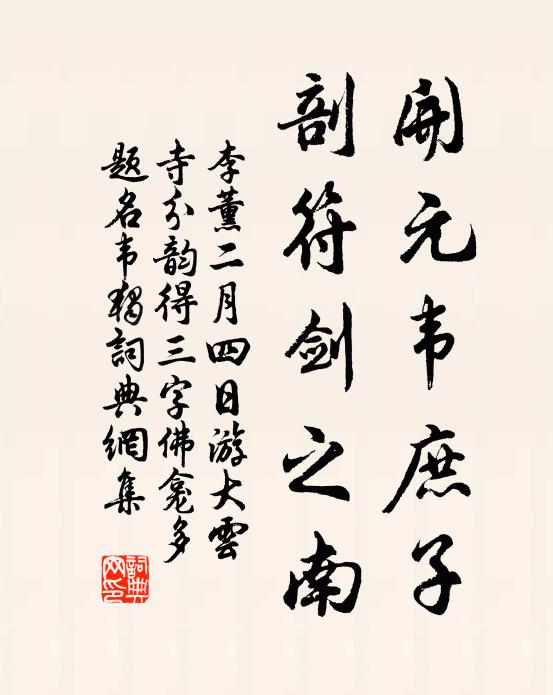 開元韦庶子
剖符剑之南
李薰二月四日游大雲
寺分韵得三字佛龛多
題名韦獨詞典網集
詞典网印